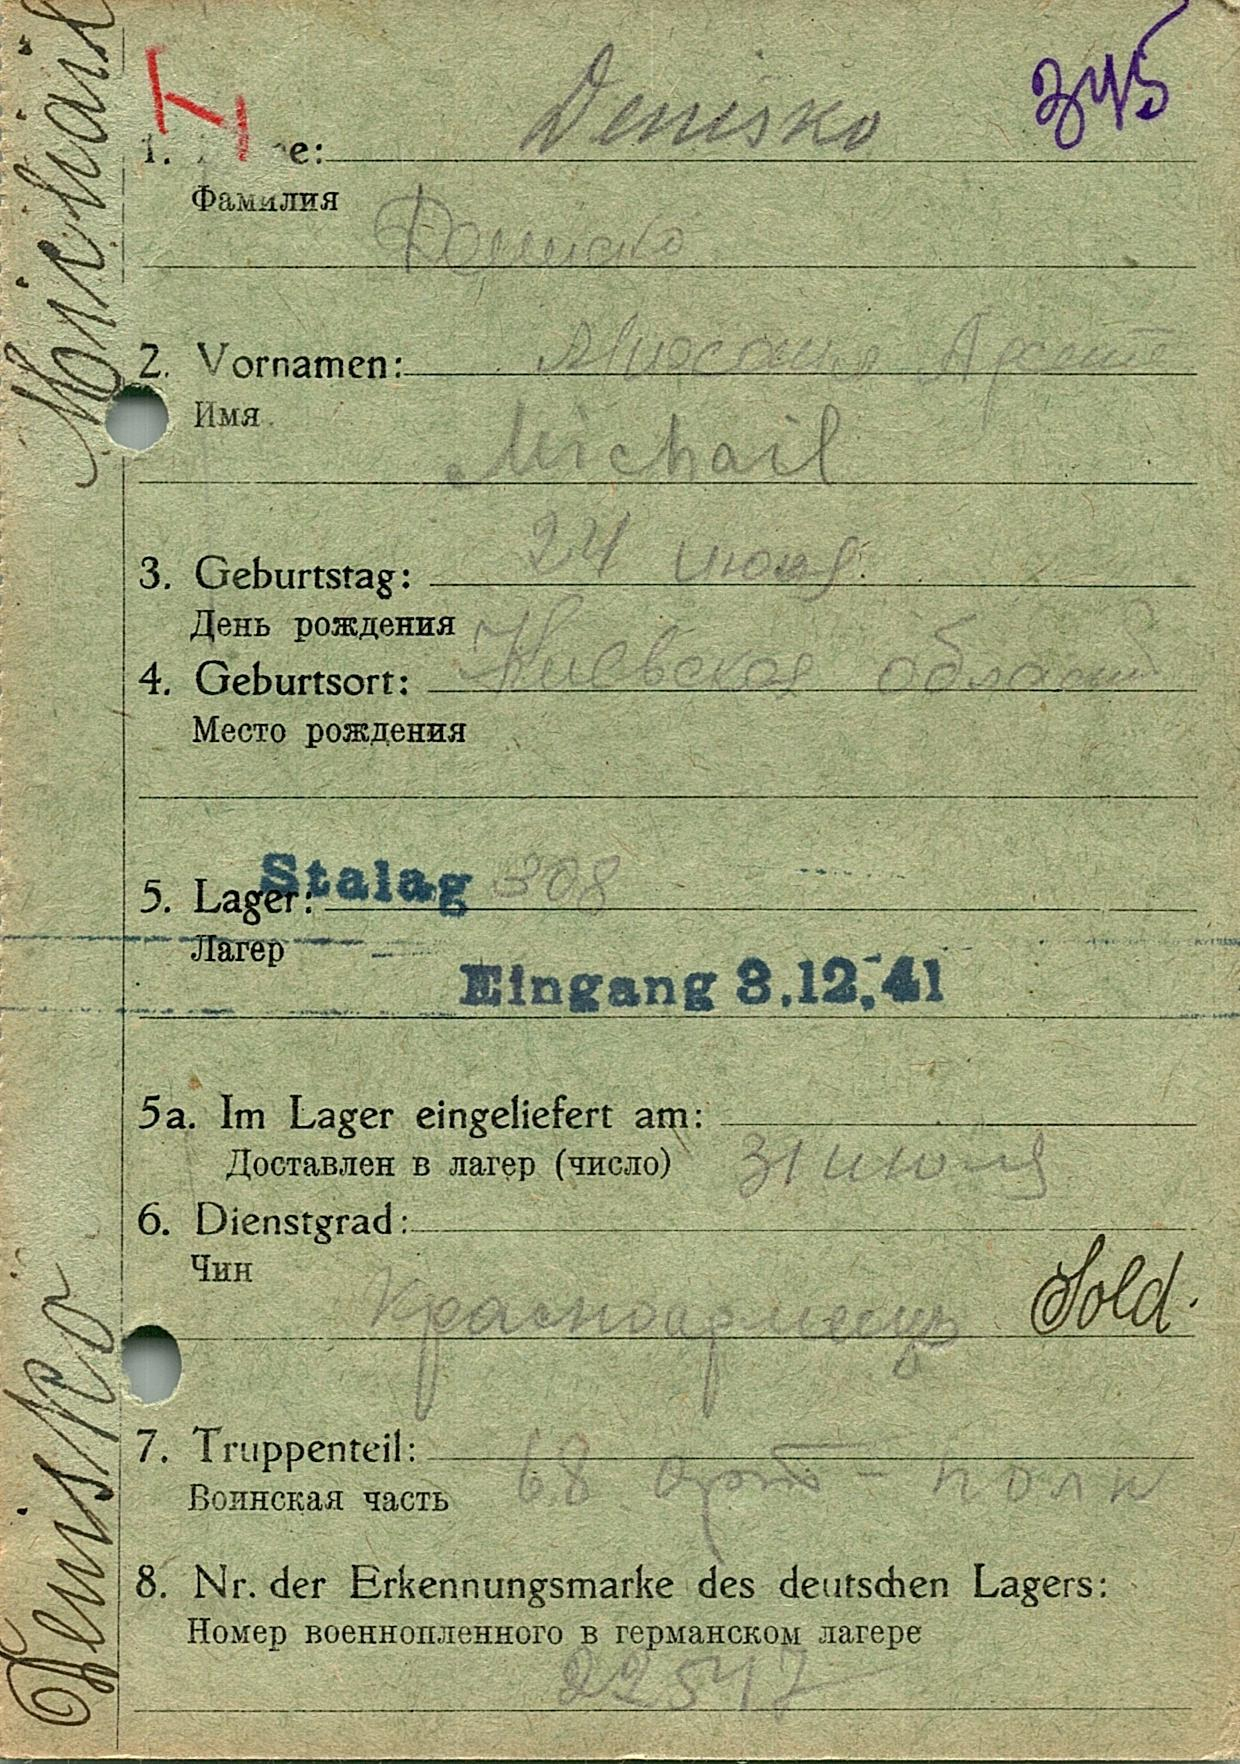 345
I
1. e: Denisko
Фамилия
Дениско
2. Vornamen: Михаил
Имя
Michail
3. Geburtstag: 24 июня
День рождения
4. Geburtsort: Киевская област
Место рождения
5. Lager: Stalag 308
Лагер
Eingang 3.12.41
5a. Im Lager eingeliefert am:
Доставлен в лагер (число) 31 июля
6. Dienstgrad:
Чин
Красноармеец Sold.
7. Truppenteil:
Воинская часть 68 арт-полк
8. Nr. der Erkennungsmarke des deutschen Lagers:
Номер военнопленного в германском лагере
22547
Denisko Michail